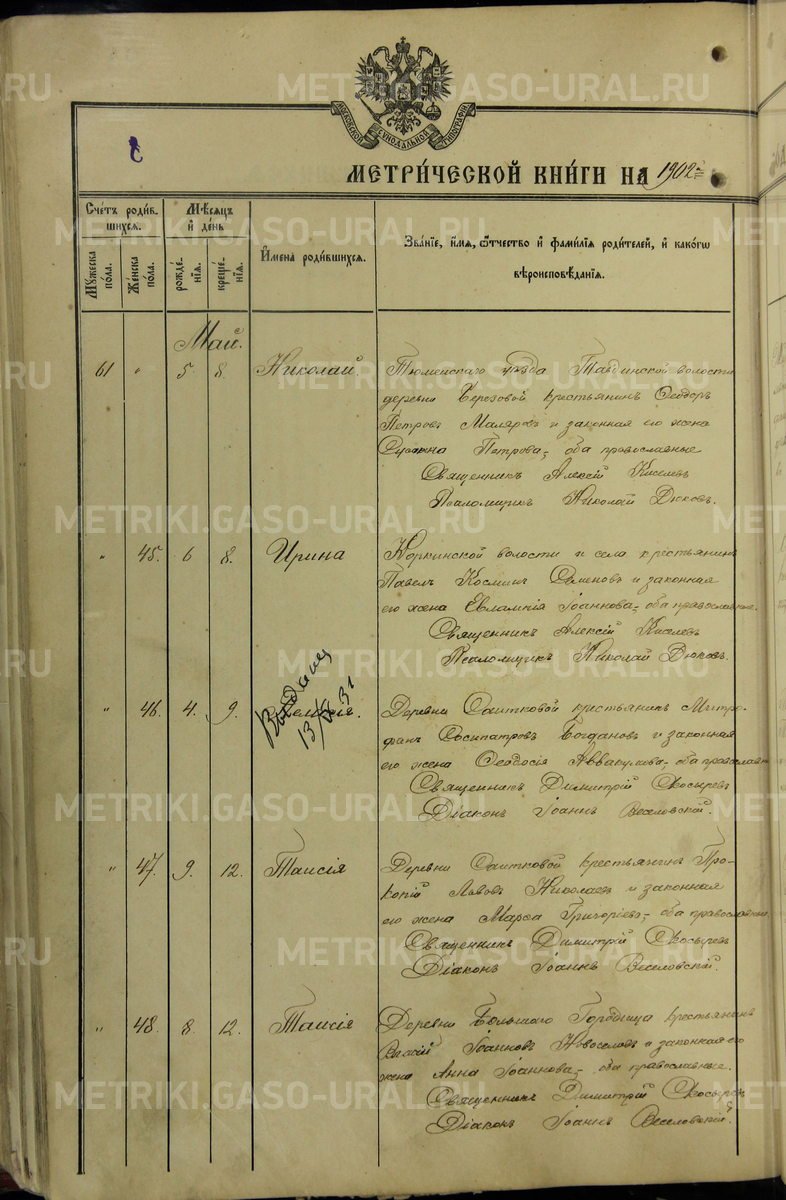 МЕТРИ́ЧЕСКОЙ КНИ́ГИ НА 1902
Сче́тъ роди́в-
шихся.
Му́жеска
пола.
Же́нска
пола.
Мѣ́сяцъ
и де́нь
рожде́-
нія.
креще́-
нія.
И́мена роди́вшихся.
Зва́ніе, и́мя, ѻ҆́тчество и фами́лія роди́телей, и како́гѡ
вѣроисповѣ́данія.
Май.
61 " 5 8 Николай.
Тюменскаго уѣзда Тавдинской волости
деревни Березовой крестьянинъ Ѳеодоръ
Петровъ Маляровъ и законная его жена
Петрова, оба православные
Священникъ Алексій Киселевъ
Псаломщикъ Николай Дюковъ.
" 45. 6 8. Ирина
волости и села крестьянинъ
Павелъ Косминъ Семеновъ и законная
его жена Евлампія Іоаннова, оба православные.
Священникъ Алексій Киселевъ
Псаломщикъ Николай Дюковъ.
" 46. 4. 9.
Деревни Саитковой крестьянинъ Митро-
фанъ Сосипатровъ Богдановъ и законная
его жена Ѳеодосія Аввакумова, оба православн
Священникъ Димитрій Скосыревъ
Діаконъ Іоаннъ Веселовскій.
" 47. 9. 12. Таисія
Деревни Саитковой крестьянинъ Про-
копій Львовъ Николаевъ и законная
его жена Марѳа Григорьева, оба православные.
Священникъ Димитрій Скосыревъ
Діаконъ Іоаннъ Веселовскій.
" 48. 8. 12. Таисія
Деревни Большаго Городища крестьянинъ
Іоанновъ Новоселовъ и законная его
жена Анна Іоаннова, оба православные.
Священникъ Димитрій Скосыревъ
Діаконъ Іоаннъ Веселовскій.
METRIKI.GASO-URAL.RU